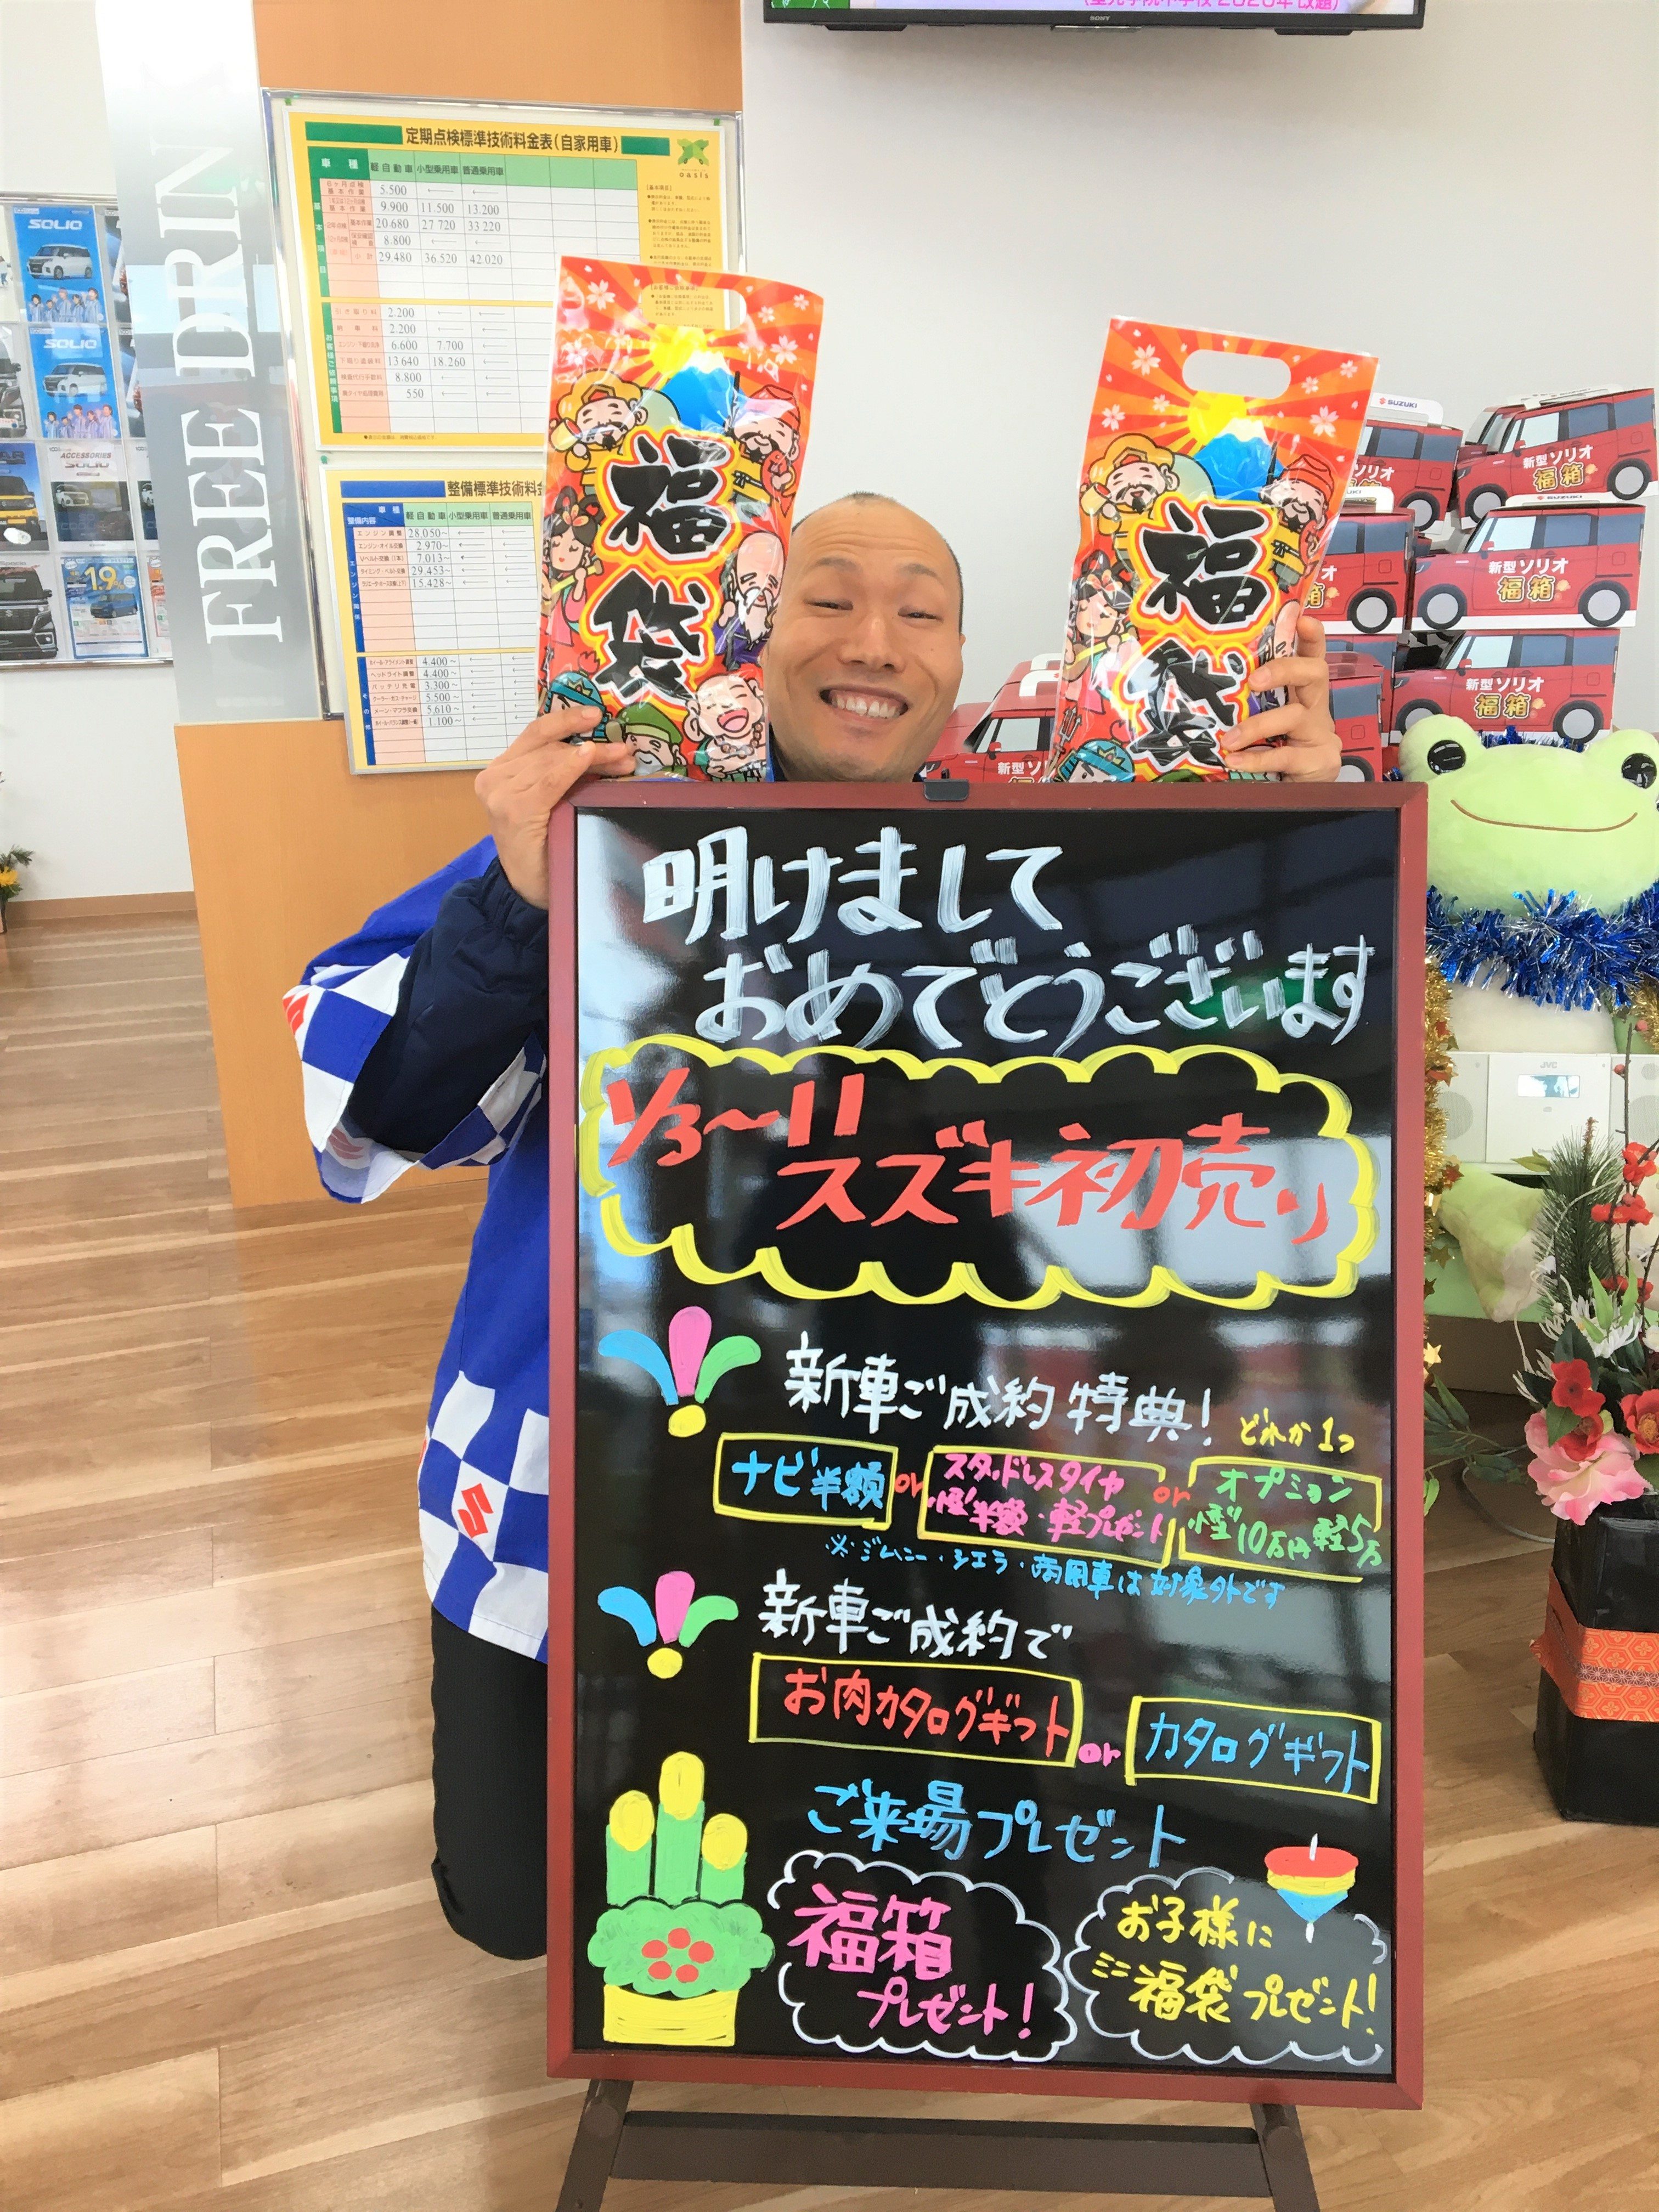 (聖光学院中学校 2020年 改題)
SONY
FREE DRIN
定期点検標準技術料金表(自家用車)
oasis
車種 軽自動車 小型乗用車 普通乗用車
5.500
9.900 11.500 13.200
20.680 27 720 33 220
8.800
小計 29.480 36.520 42.020
2.200
2.200
6.600 7.700
下廻り塗装料 13.640 18.260
検査代行手数料 8.800
550
整備標準技術料金
車種 軽自動車 小型乗用車 普通乗用車
整備内容
エンジン調整 28,050~
エンジン・オイル交換 2.970~
7.013~
タイミング・ベルト交換 29.453~
15.428~
4.400~
ヘッドライト調整 4.400~
バッテリ充電 3.300~
クーラー・ガス・チャージ 5.500~
メーン・マフラ交換 5,610~
1.100~
SOLIO
SOLIO
ACCESSORIES
SOLIO
1.9
福袋
福袋
SUZUKI
新型ソリオ
福箱
新型ソリオ
福箱
新型ソリオ
福箱
JVC
明けまして
おめでとうございます
1/3~11
スズキ初売り
新車ご成約特典!
どれか1つ
ナビ半額 or スタッドレスタイヤ 登半額・軽プレゼント or オプション 登10万円 軽5万
※ジムニー・シエラ・商用車は対象外です
新車ご成約で
お肉カタログギフト or カタログギフト
ご来場プレゼント
福箱
プレゼント!
お子様に
ミニ福袋プレゼント!